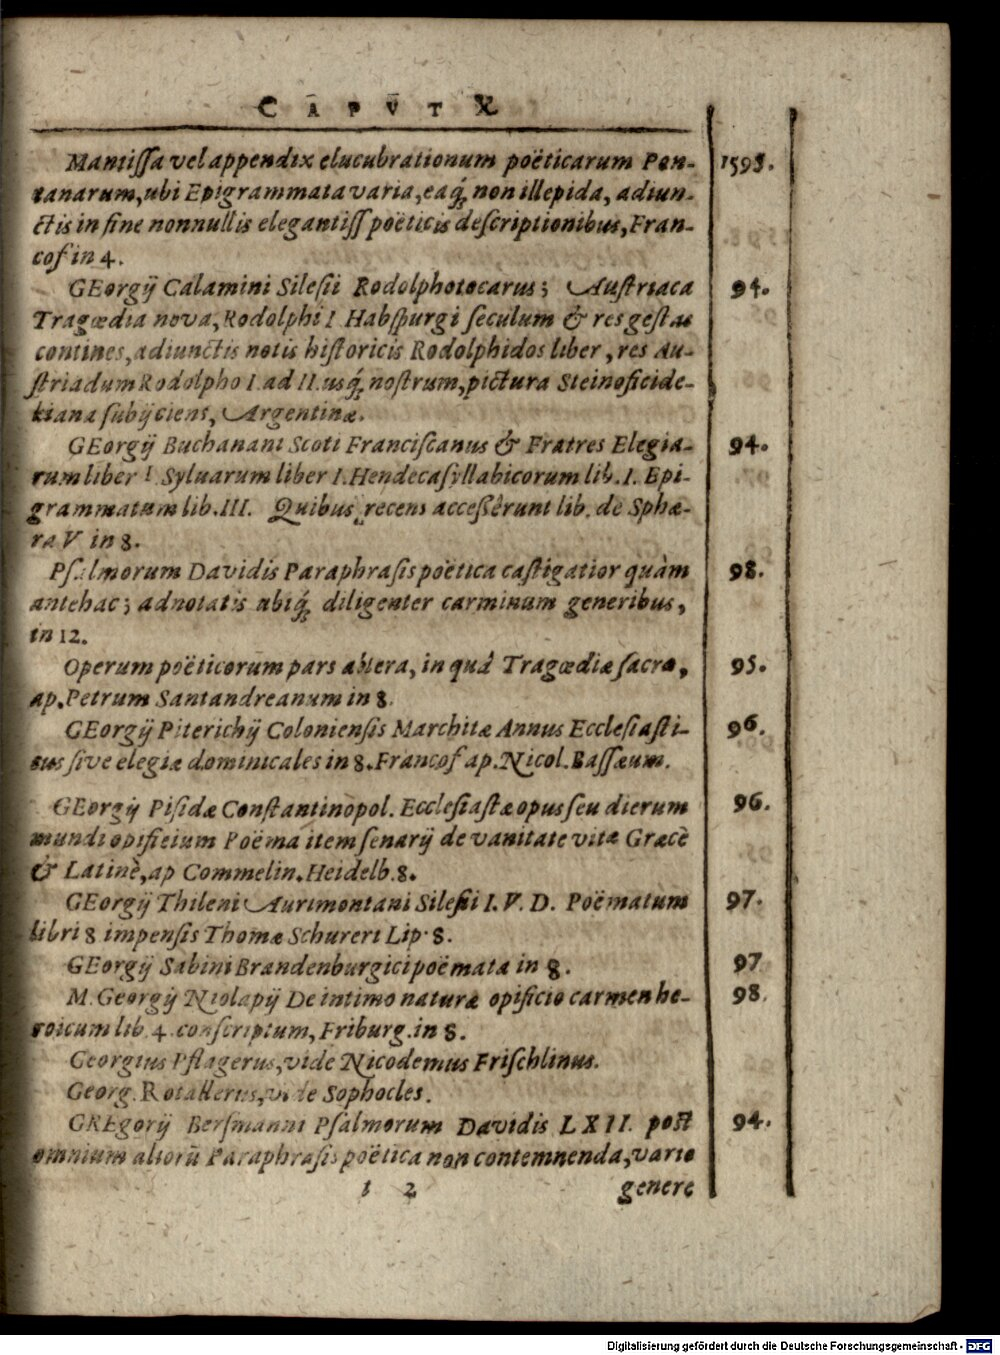 CAPVT X
Mantissa vel appendix elucubrationum poëticarum Pon- 1595.
tanarum, ubi Epigrammata varia, eaq́, non illepida, adiun-
ctis in fine nonnullis elegantiss poëticis descriptionibus, Fran-
cof in 4.
GEorgij Calamini Silesii Rodolphotocarus; Austriaca 94.
Tragœdia nova, Rodolphi I Habspurgi seculum & res gestas
contines, adiunctis notis historicis Rodolphidos liber, res Au-
striadum Rodolpho I. ad II. usq́, nostrum, pictura Steinoficide-
kiana subijciens, Argentinæ.
GEorgij Buchanani Scoti Franciscanus & Fratres Elegia- 94.
rum liber I Syluarum liber I. Hendecasyllabicorum lib. I. Epi-
grammatum lib. III. Quibus recens accessêrunt lib. de Sphæ-
ra V in 8.
Psalmorum Davidis Paraphrasis poëtica castigatior quàm 98.
antehac; adnotatis ubiq́, diligenter carminum generibus,
in 12.
Operum poëticorum pars altera, in quâ Tragœdiæ sacra, 95.
ap. Petrum Santandreanum in 8.
GEorgij Piterichij Coloniensis Marchitæ Annus Ecclesiasti- 96.
cus sive elegiæ dominicales in 8. Francof ap. Nicol. Bassæum.
GEorgij Pisidæ Constantinopol. Ecclesiastæ opus seu dierum 96.
mundi opificium Poëma item senarij de vanitate vitæ Græcè
& Latinè, ap Commelin. Heidelb. 8.
GEorgij Thileni Aurimontani Silesii I. V. D. Poëmatum 97.
libri 8 impensis Thomæ Schureri Lip. 8.
GEorgij Sabini Brandenburgici poëmata in 8. 97
M. Georgij Niolapij De intimo naturæ opificio carmen he- 98.
roicum lib. 4 conscriptum, Friburg. in 8.
Georgius Pflagerus, vide Nicodemus Frischlinus.
Georg. Rotallerus, vide Sophocles.
GREgorij Bersmanni Psalmorum Davidis LXII. post 94.
omnium aliorū Paraphrasis poëtica non contemnenda, vario
1 2 genere
Digitalisierung gefördert durch die Deutsche Forschungsgemeinschaft - DFG